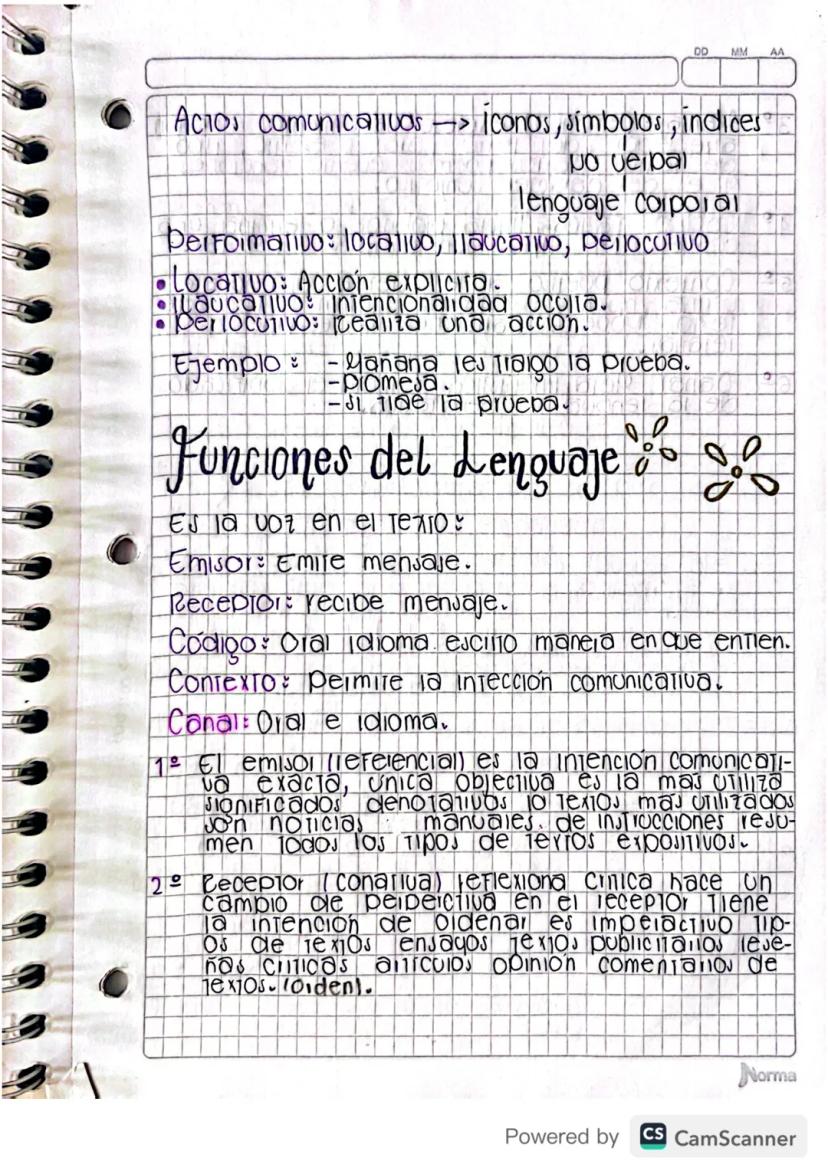 DD MM AA
Actos comunicativos → íconos, símbolos, índices
no verbal
lenguaje corporal
Performativo: locativo, Ilaucativo, perlocutivo
• Locativo: Acción explicita.
• Ilaucativo: Intencionalidad oculta.
• Perlocutivo: Realiza una acción.
Ejemplo: - Mañana les traigo la prueba.
- Promesa.
- Si trae la prueba.
Funciones del Lenguaje
Es la voz en el texto:
Emisor: Emite mensaje.
Receptor: recibe mensaje.
Código: Oral idioma escrito manera en que entien.
Contexto: Permite la intección comunicativa.
Canal: Oral e idioma.
1º El emisor (referencial) es la intención comunicati-
va exacta, única objectiva es la más utiliza
significados denotativos lo textos más utilizados
son noticias manuales. de instrucciones resu-
men todos los tipos de textos expositivos.
2º Receptor (conativa) reflexiona critica hace un
cambio de perpectiva en el receptor tiene
la intención de ordenar es imperactivo tip-
os de textos ensayos textos publicitarios rese-
ñas criticas artículos opinión comentarios de
textos. (orden).
Norma
Powered by CS CamScanner